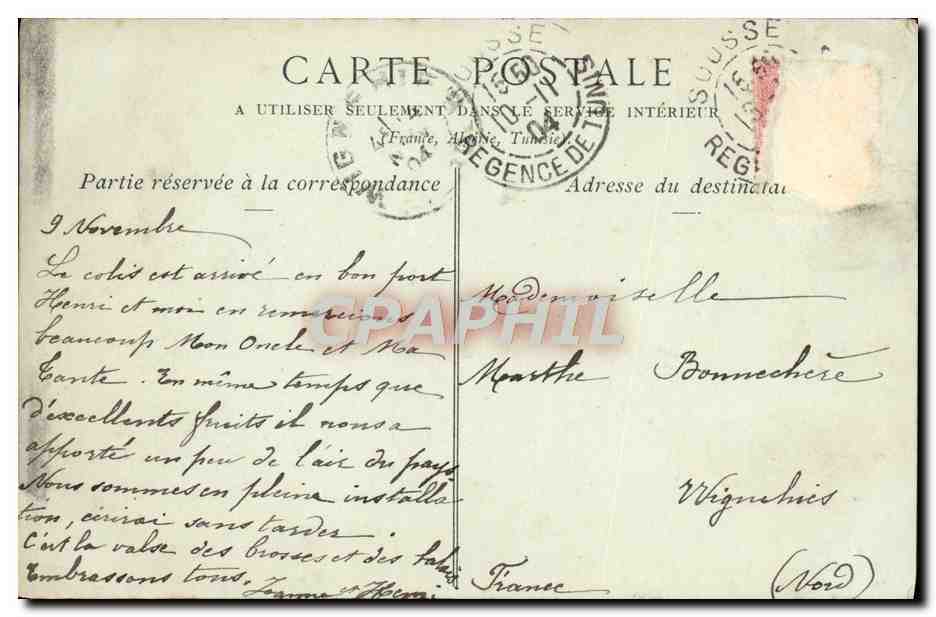 CARTE POSTALE
A UTILISER SEULEMENT DANS LE SERVICE INTÉRIEUR
(France, Algérie, Tunisie)
Partie réservée à la correspondance
9 Novembre
Le colis est arrivé en bon port
Henri et moi en remercions
beaucoup Mon Oncle et Ma
Tante. En même temps que
d'excellents fruits il nous a
apporté un peu de l'air du pays
Nous sommes en pleine installa
tion, écrirai sans tarder.
C'est la valse des brosses et des balais
Embrassons tous.
Jeanne et Henri
Adresse du destinatai
Mademoiselle
Marthe Bonnechère
Wignehies
France (Nord)
SOUSSE
REGENCE DE TUNIS
04
SOUSSE
REG
CPAPHIL